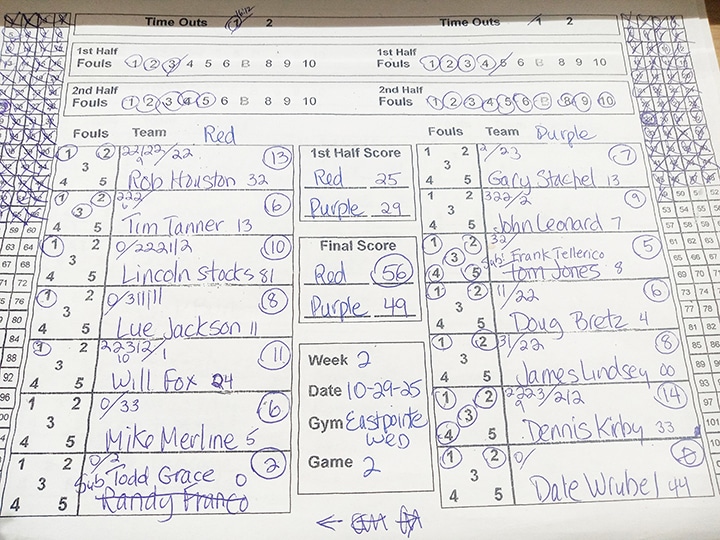 Time Outs 1 2 Time Outs 1 2
1st Half Fouls 1 2 3 4 5 6 B 8 9 10
1st Half Fouls 1 2 3 4 5 6 B 8 9 10
2nd Half Fouls 1 2 3 4 5 6 B 8 9 10
2nd Half Fouls 1 2 3 4 5 6 B 8 9 10
Fouls Team Red
1 2 3 4 5
13
Rob Houston 32
1 2 3 4 5
6
Tim Tanner 13
1 2 3 4 5
0/222112 10
Lincoln Stocks 81
1 2 3 4 5
0/311111 8
Lue Jackson 11
1 2 3 4 5
11
Will Fox 24
1 2 3 4 5
0/33 6
Mike Merline 5
1 2 3 4 5
0/2 2
Sub Todd Grace 0
Randy Franco
1st Half Score
Red 25
Purple 29
Final Score
Red 56
Purple 49
Week 2
Date 10-29-25
Gym Eastpointe
Wed
Game 2
Fouls Team Purple
1 2 3 4 5
2/23 7
Gary Stachel 13
1 2 3 4 5
322/2 9
John Leonard 7
1 2 3 4 5
32/ 5
Sub: Frank Tellerico
Tom Jones 8
1 2 3 4 5
11/22 6
Doug Bretz 4
1 2 3 4 5
31/22 8
James Lindsey 00
1 2 3 4 5
14
Dennis Kirby 33
1 2 3 4 5
0/
Dale Wrubel 44